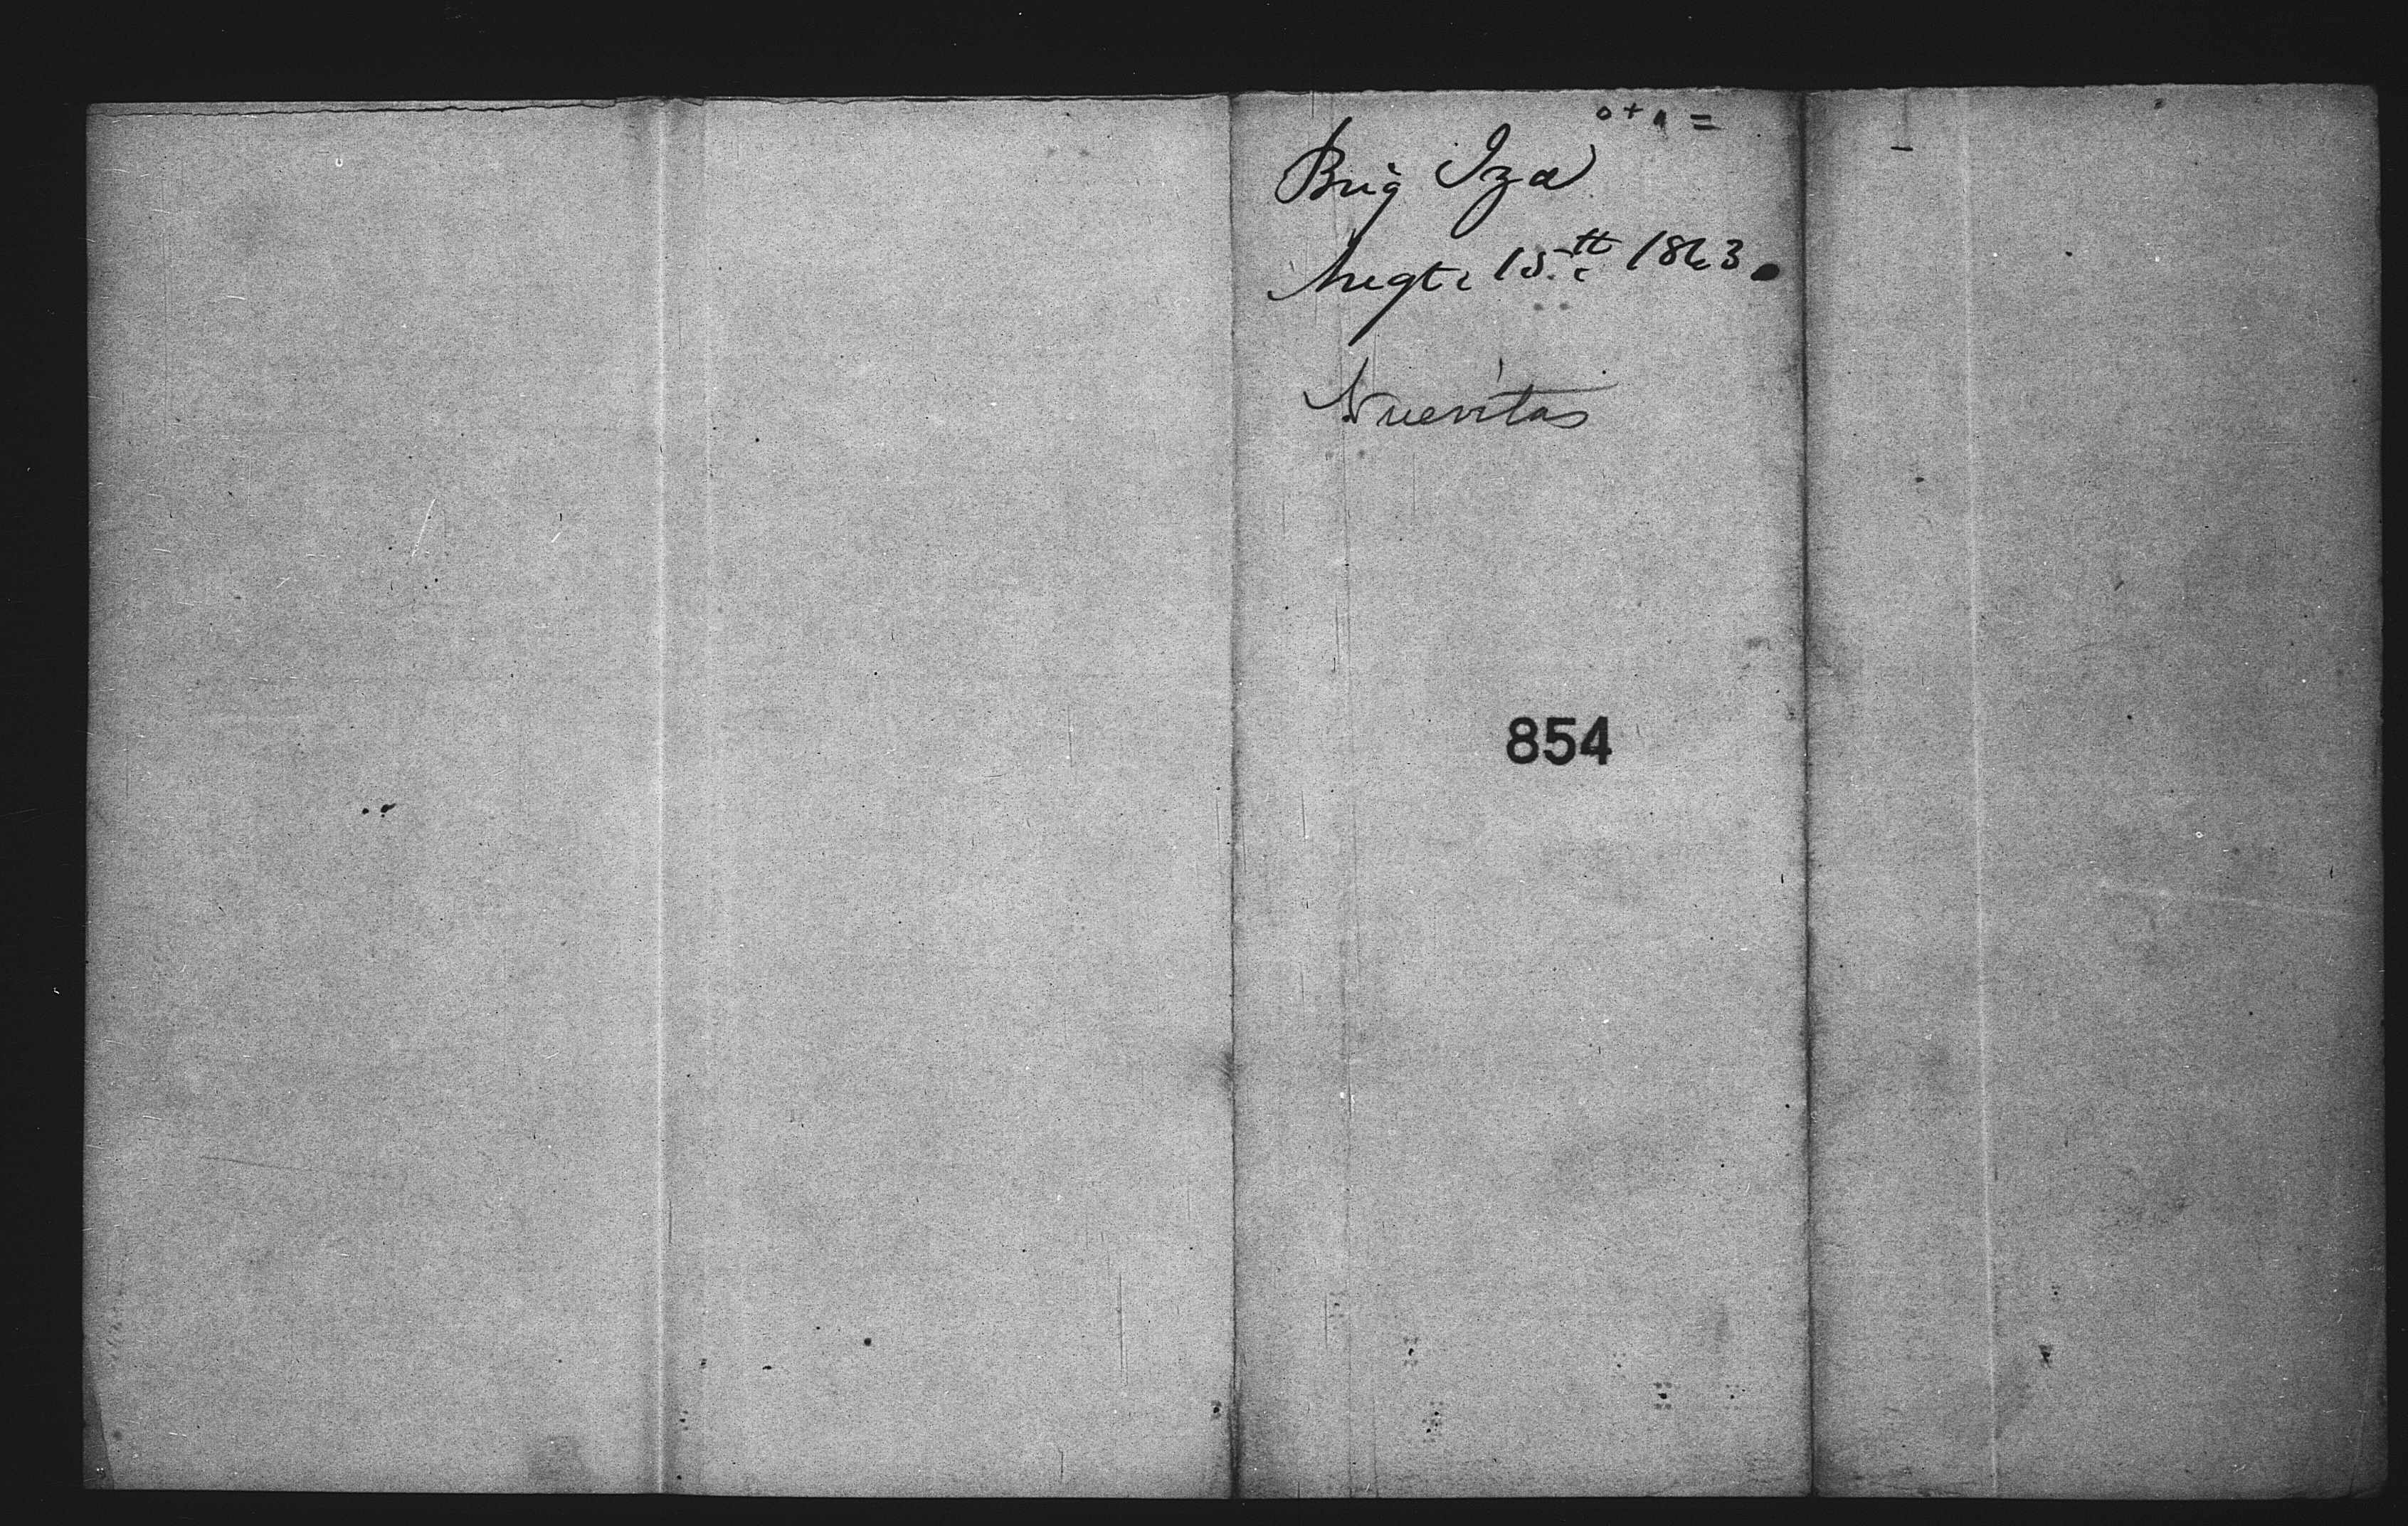 Brig Iza
Augt. 15th 1863.
Nuevitas
854